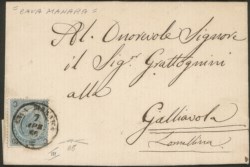 "CAVA MANARA"
Al. Onorevole Signore
il Sig.r Grattognini
alla
Gallivola
Lomellina
CAVA MANARA
7
APR